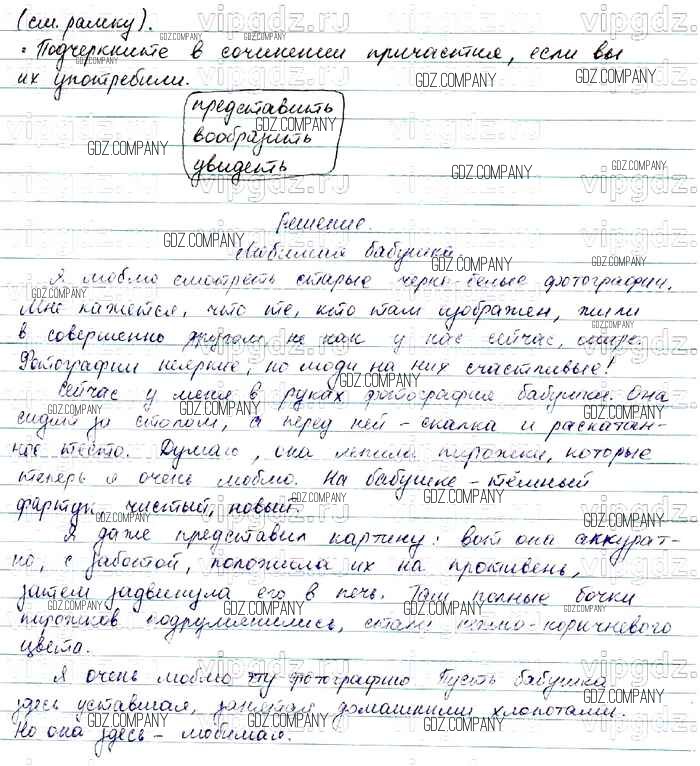 (см. рамку).
• Подчеркните в сочинении причастия, если вы
их употребили.
представить
вообразить
увидеть
Решение.
Любимая бабушка.
Я люблю смотреть старые черно-белые фотографии.
Мне кажется, что те, кто там изображен, жили
в совершенно другом, не как у нас сейчас, мире.
Фотографии неяркие, но люди на них счастливые!
Сейчас у меня в руках фотография бабушки. Она
сидит за столом, а перед ней - скалка и раскатан-
ное тесто. Думаю, она лепила пирожки, которые
теперь я очень люблю. На бабушке - тёмный
фартук, чистый, новый.
Я даже представил картину: вот она аккурат-
но, с заботой, положила их на противень,
затем задвинула его в печь. Там полные бочки
пирожков подрумянились, стали темно-коричневого
цвета.
Я очень люблю эту фотографию. Пусть бабушка
здесь уставшая, занятая домашними хлопотами.
Но она здесь - любимая.